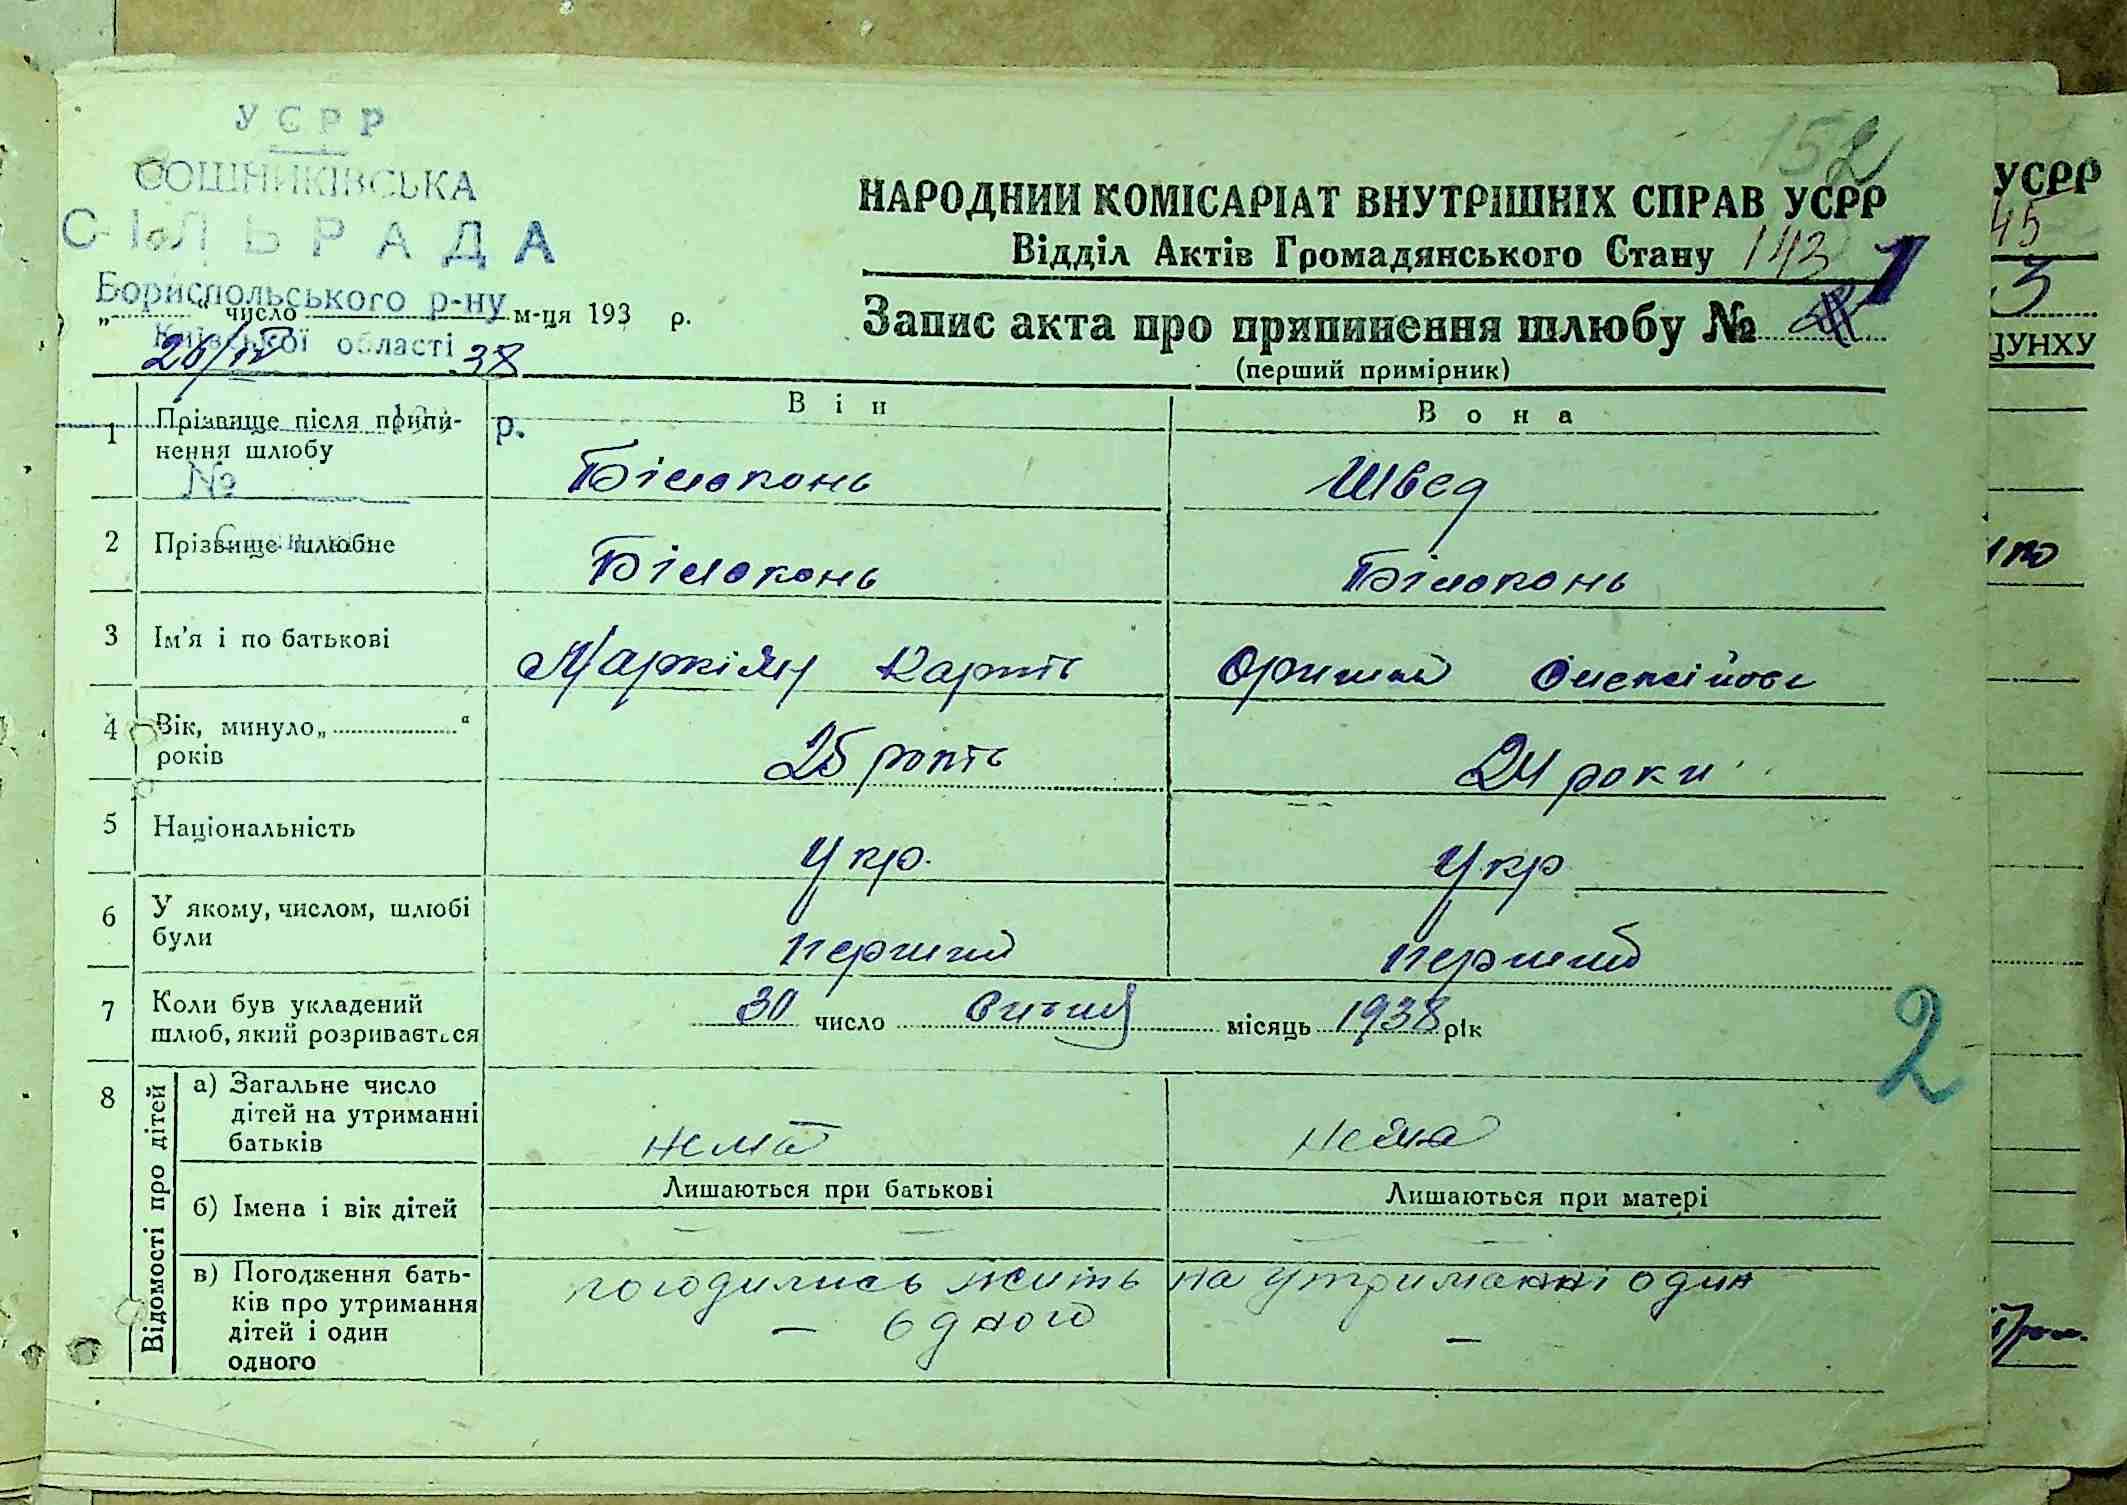 152
УСРР
СОШНИКІВСЬКА
СІЛЬРАДА
Бориспольського р-ну
Київської області
„ “ число м-ця 193 р.
26/IV 38
193 р.
№
НАРОДНИЙ КОМІСАРІАТ ВНУТРІШНІХ СПРАВ УСРР
Відділ Актів Громадянського Стану 143
Запис акта про припинення шлюбу № 1
(перший примірник)
Він Вона
1 Прізвище після припинення шлюбу Білоконь Швед
2 Прізвище шлюбне Білоконь Білоконь
3 Ім'я і по батькові Маркіян Карпть
4 Вік, минуло „ “ років 25 років 24 роки
5 Національність Укр. Укр
6 У якому, числом, шлюбі були перший перший
7 Коли був укладений шлюб, який розривається 30 число місяць 1938 рік
2
8 Відомості про дітей
а) Загальне число дітей на утриманні батьків нема нема
б) Імена і вік дітей Лишаються при батькові Лишаються при матері
— — — —
в) Погодження батьків про утримання дітей і один одного погодились жить на утриманні один
— одного —
УСРР
45
3
ЦУНХУ